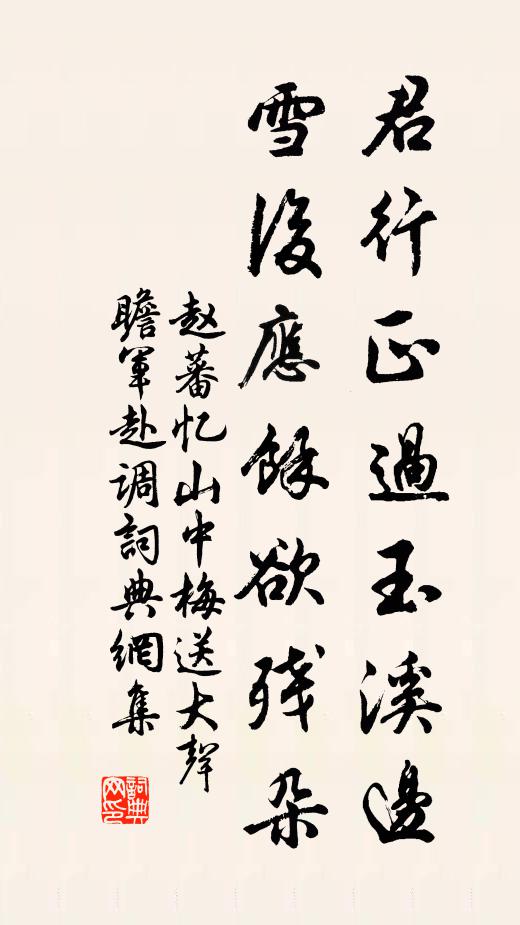 君行正過玉溪邊
雪後應餘欲残朵
赵蕃忆山中梅送大聲
瞻軍赴调詞典網集
詞典網印